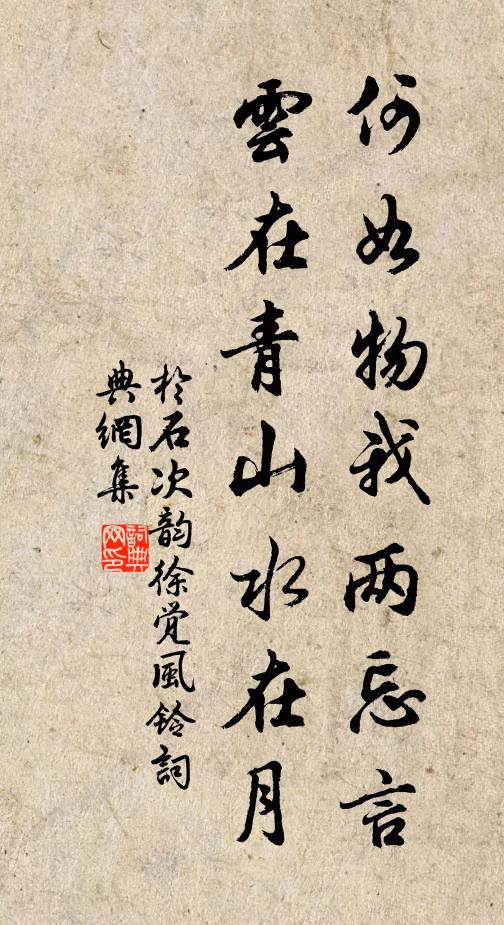 何如物我两忘言
雲在青山水在月
於石次韵徐觉風鈴詞
典網集
詞典网印